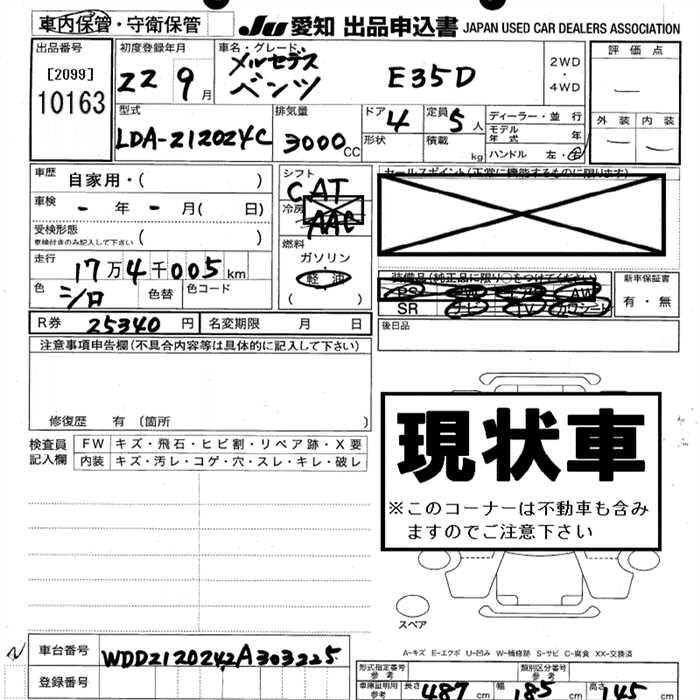 車内保管・守衛保管 JU 愛知 出品申込書 JAPAN USED CAR DEALERS ASSOCIATION
出品番号 初度登録年月 車名・グレード 評価点
[2099] 22 9月 メルセデス E35D 2WD
10163 ベンツ ・
4WD
型式 排気量 ドア 4 定員 5人 ディーラー・並行 外装 内装
LDA-212024C 3000CC 形状 積載 kg モデル年式 年
ハンドル 左・右
車歴 自家用・( ) シフト セールスポイント(正常に機能するものに限ります)
車検 - 年 - 月( 日) CAT
冷房 AAC
受検形態
車検付きのみ記入して下さい ( ) 燃料
走行 17万4千005km ガソリン
軽油
色 シロ 色替 色コード ( )
装備品(純正品に限り○をつけてください) 新車保証書
PS PW AW 有・無
SR ナビ TV カワシート
R券 25340円 名変期限 月 日 後日品
注意事項申告欄(不具合内容等は具体的に記入して下さい)
修復歴 有(箇所 )
検査員 FW キズ・飛石・ヒビ割・リペア跡・X要
記入欄 内装 キズ・汚レ・コゲ・穴・スレ・キレ・破レ
現状車
※このコーナーは不動車も含み
ますのでご注意下さい
スペア
A-キズ E-エクボ U-凹み W-補修跡 S-サビ C-腐食 XX-交換済
車台番号 WDD2120242A303225
登録番号
形式指定番号 参考 類別区分番号 参考
車庫証明用 参考 長さ 487cm 幅 185cm 高さ 145cm